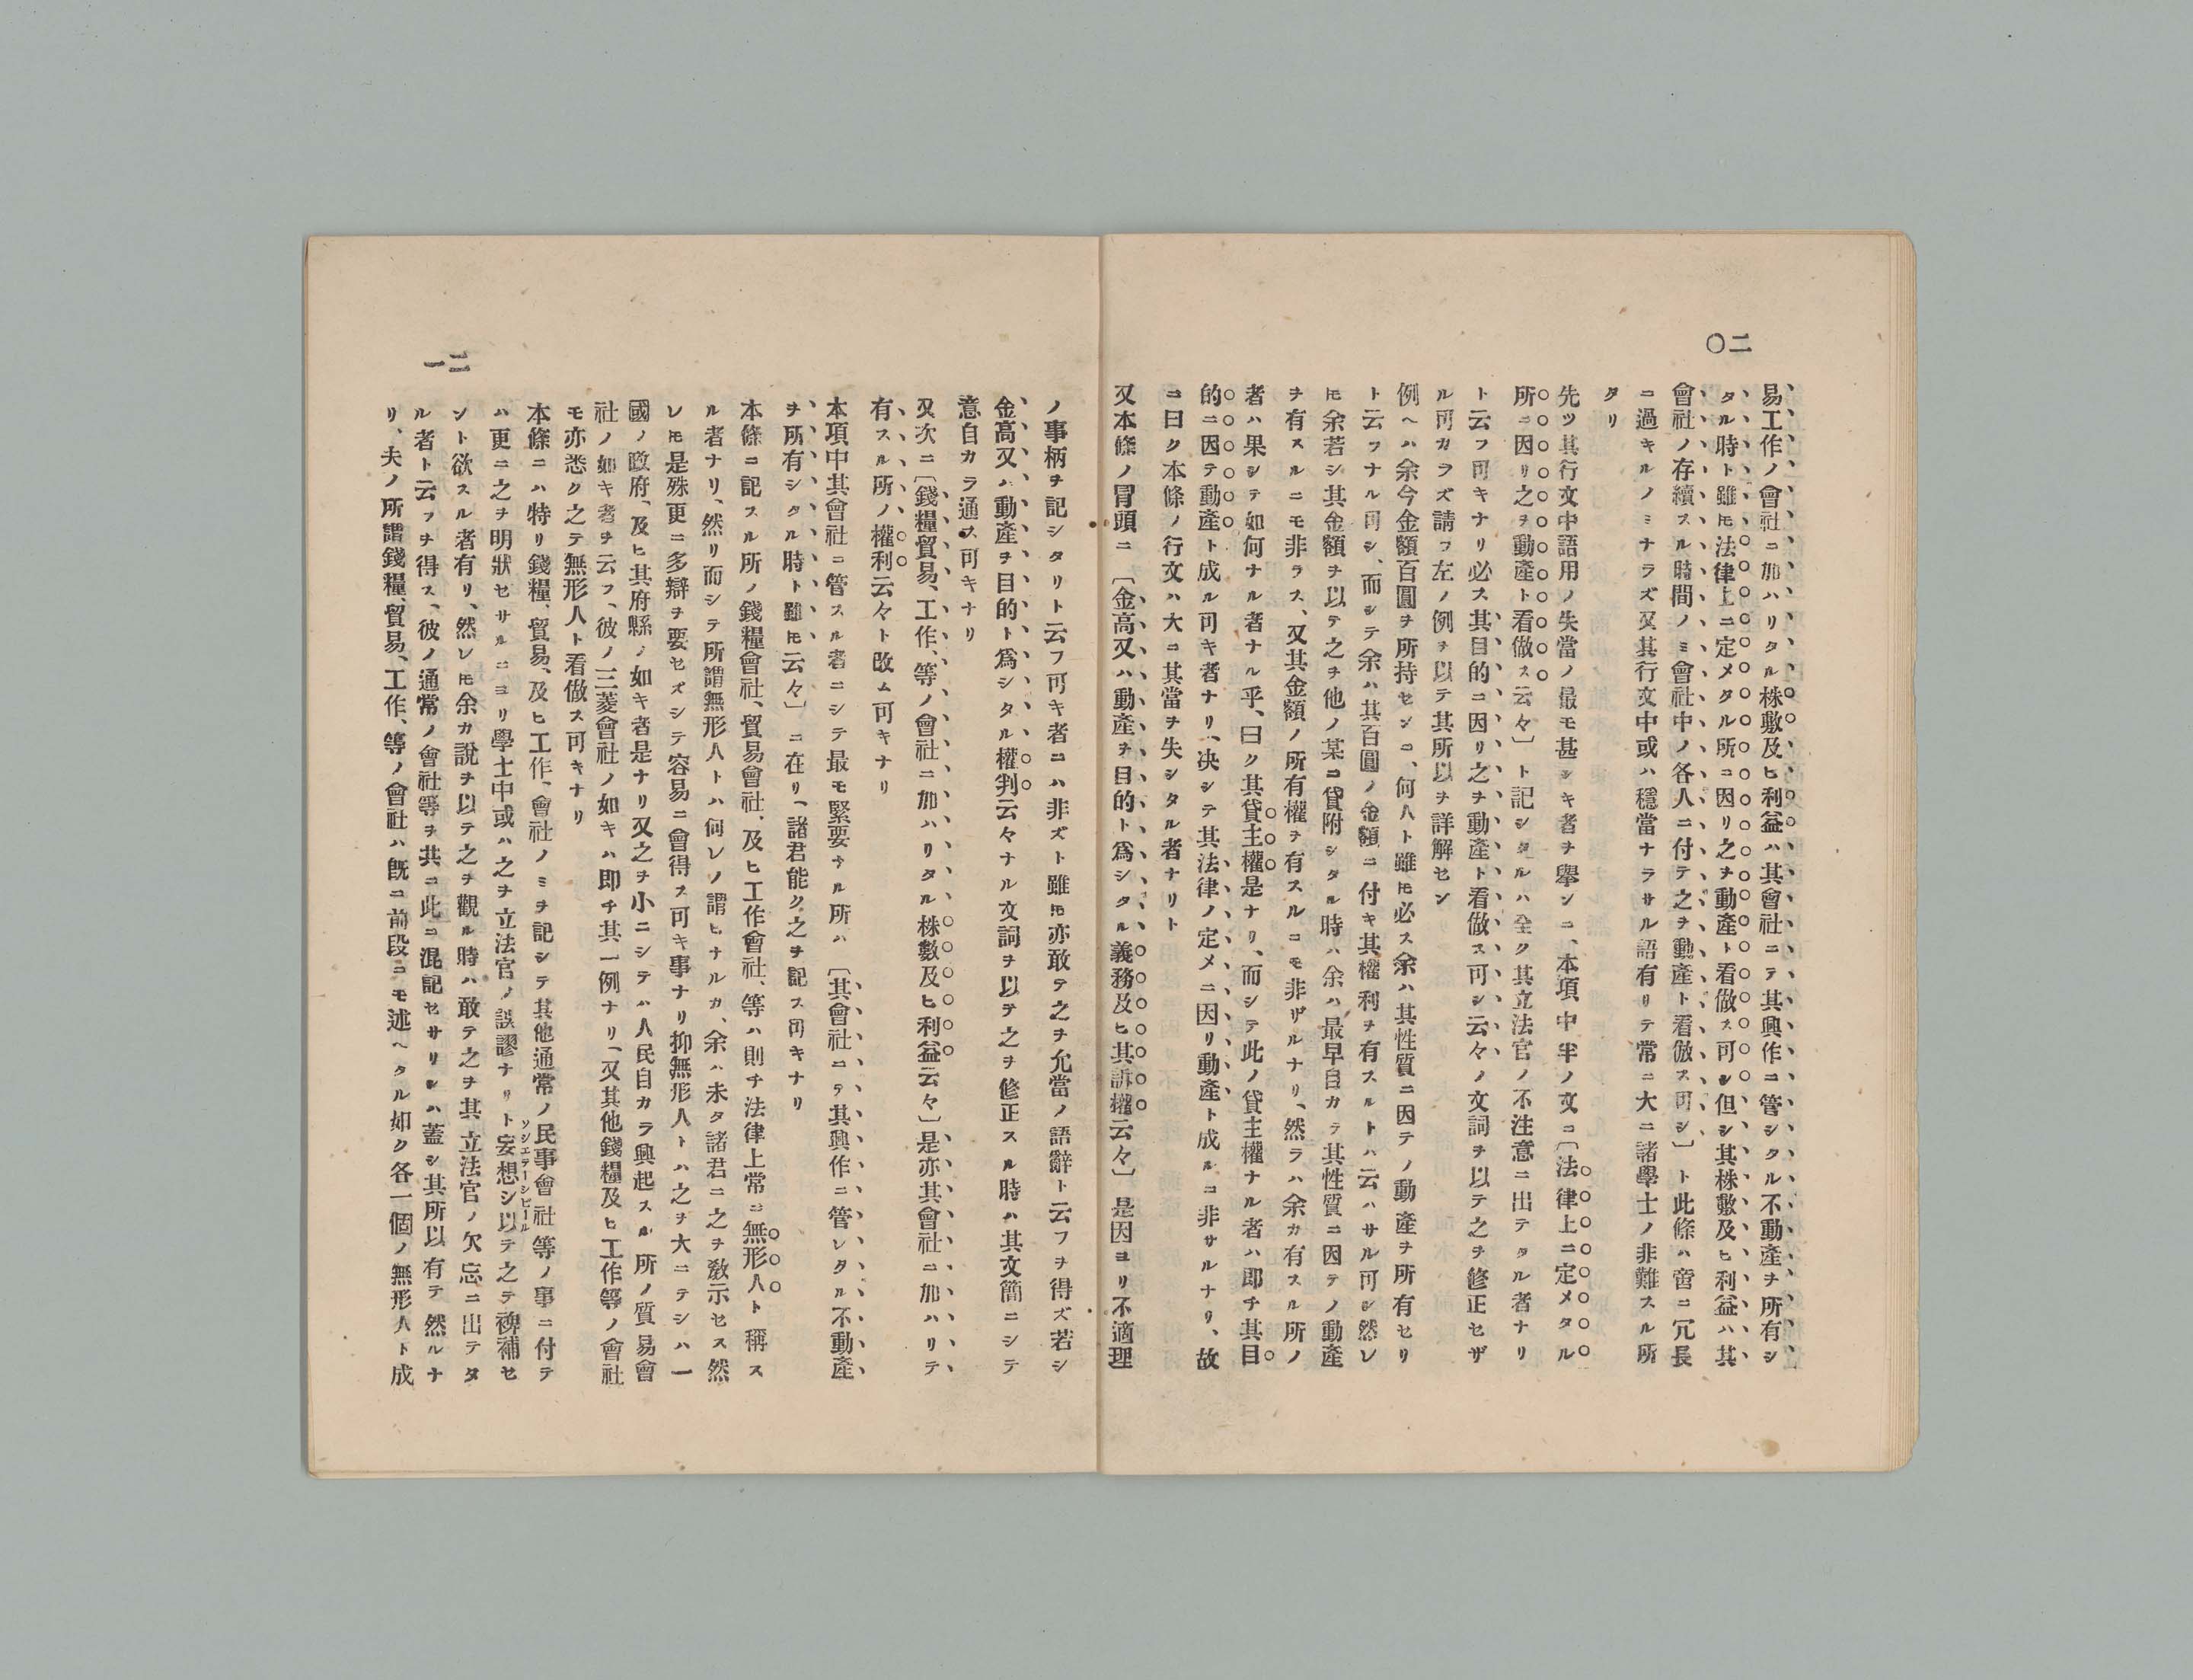 二〇
易工作ノ會社ニ加ハリタル株敷及ヒ利益ハ其會社ニテ其興作ニ管シタル不動產ヲ所有シ
タル時ト雖𪜈法律上ニ定メタル所ニ因リ之ヲ動產ト看做ス可シ但シ其株敷及ヒ利益ハ其
會社ノ存續スル時間ノミ會社中ノ各人ニ付テ之ヲ動產ト看倣ス可シ〕ト此條ハ啻ニ冗長
ニ過キルノミナラズ又其行文中或ハ穩當ナラサル語有リテ常ニ大ニ諸學士ノ非難スル所
タリ
先ツ其行文中語用ノ失當ノ最モ甚シキ者ヲ舉ンニ、本項中半ノ文ニ〔法律上ニ定メタル
所ニ因リ之ヲ動產ト看做ス云々〕ト記シタルハ全ク其立法官ノ不注意ニ出テタル者ナリ
ト云フ可キナリ必ス其目的ニ因リ之ヲ動產ト看做ス可シ云々ノ文詞ヲ以テ之ヲ修正セザ
ル可カラズ請フ左ノ例ヲ以テ其所以ヲ詳解セン
例ヘハ余今金額百圓ヲ所持センニ、何人ト雖𪜈必ス余ハ其性質ニ因テノ動產ヲ所有セリ
ト云フナル可シ、而シテ余ハ其百圓ノ金額ニ付キ其權利ヲ有スルトハ云ハサル可シ然レ
𪜈余若シ其金額ヲ以テ之ヲ他ノ某ニ貸附シタル時ハ余ハ最早自カラ其性質ニ因テノ動產
ヲ有スルニモ非ラス、又其金額ノ所有權ヲ有スルニモ非ザルナリ、然ラハ余カ有スル所ノ
者ハ果シテ如何ナル者ナル乎、曰ク其貸主權是ナリ、而シテ此ノ貸主權ナル者ハ即チ其目
的ニ因テ動產ト成ル可キ者ナリ、决シテ其法律ノ定メニ因リ動產ト成ルニ非サルナリ、故
ニ曰ク本條ノ行文ハ大ニ其當ヲ失シタル者ナリト
又本條ノ冒頭ニ〔金高又ハ動產ヲ目的ト爲シタル義務及ヒ其訴權云々〕是因ヨリ不適理
二一
ノ事柄ヲ記シタリト云フ可キ者ニハ非ズト雖𪜈亦敢テ之ヲ允當ノ語辭ト云フヲ得ズ若シ
金高又ハ動產ヲ目的ト爲シタル權判云々ナル文詞ヲ以テ之ヲ修正スル時ハ其文簡ニシテ
意自カラ通ス可キナリ
又次ニ〔錢糧貿易、工作、等ノ會社ニ加ハリタル株數及ヒ利益云々〕是亦其會社ニ加ハリテ
有スル所ノ權利云々ト改ム可キナリ
本項中其會社ニ管スル者ニシテ最モ緊要ナル所ハ〔其會社ニテ其興作ニ管シタル不動產
ヲ所有シタル時ト雖𪜈云々〕ニ在リ、諸君能ク之ヲ記ス可キナリ
本條ニ記スル所ノ錢糧會社、貿易會社、及ヒ工作會社、等ハ則チ法律上常ニ無形人ト稱ス
ル者ナリ、然リ而シテ所謂無形人トハ何レノ謂ヒナルカ、余ハ未タ諸君ニ之ヲ敎示セス然
レ𪜈是殊更ニ多辯ヲ要セズシテ容易ニ會得ス可キ事ナリ抑無形人トハ之ヲ大ニテシハ一
國ノ政府、及ヒ其府縣ノ如キ者是ナリ又之ヲ小ニシテハ人民自カラ興起スル所ノ質易會
社ノ如キ者ヲ云フ、彼ノ三菱會社ノ如キハ即チ其一例ナリ、又其他錢糧及ヒ工作等ノ會社
モ亦悉ク之テ無形人ト看做ス可キナリ
本條ニハ特リ錢糧、貿易、及ヒ工作、會社ノミヲ記シテ其他通常ノ民事會社等ノ事ニ付テ
ソシエテーシビール
ハ更ニ之ヲ明狀セサルニヨリ學士中或ハ之ヲ立法官ノ誤謬ナリト妄想シ以テ之テ裨補セ
ント欲スル者有リ、然レ𪜈余カ說ヲ以テ之ヲ觀ル時ハ敢テ之ヲ其立法官ノ欠忘ニ出テタ
ル者ト云フヲ得ス、彼ノ通常ノ會社等ヲ其ニ此ニ混記セサリシハ蓋シ其所以有テ然ルナ
リ、夫ノ所謂錢糧、貿易、工作、等ノ會社ハ旣ニ前段ニモ述ヘタル如ク各一個ノ無形人ト成